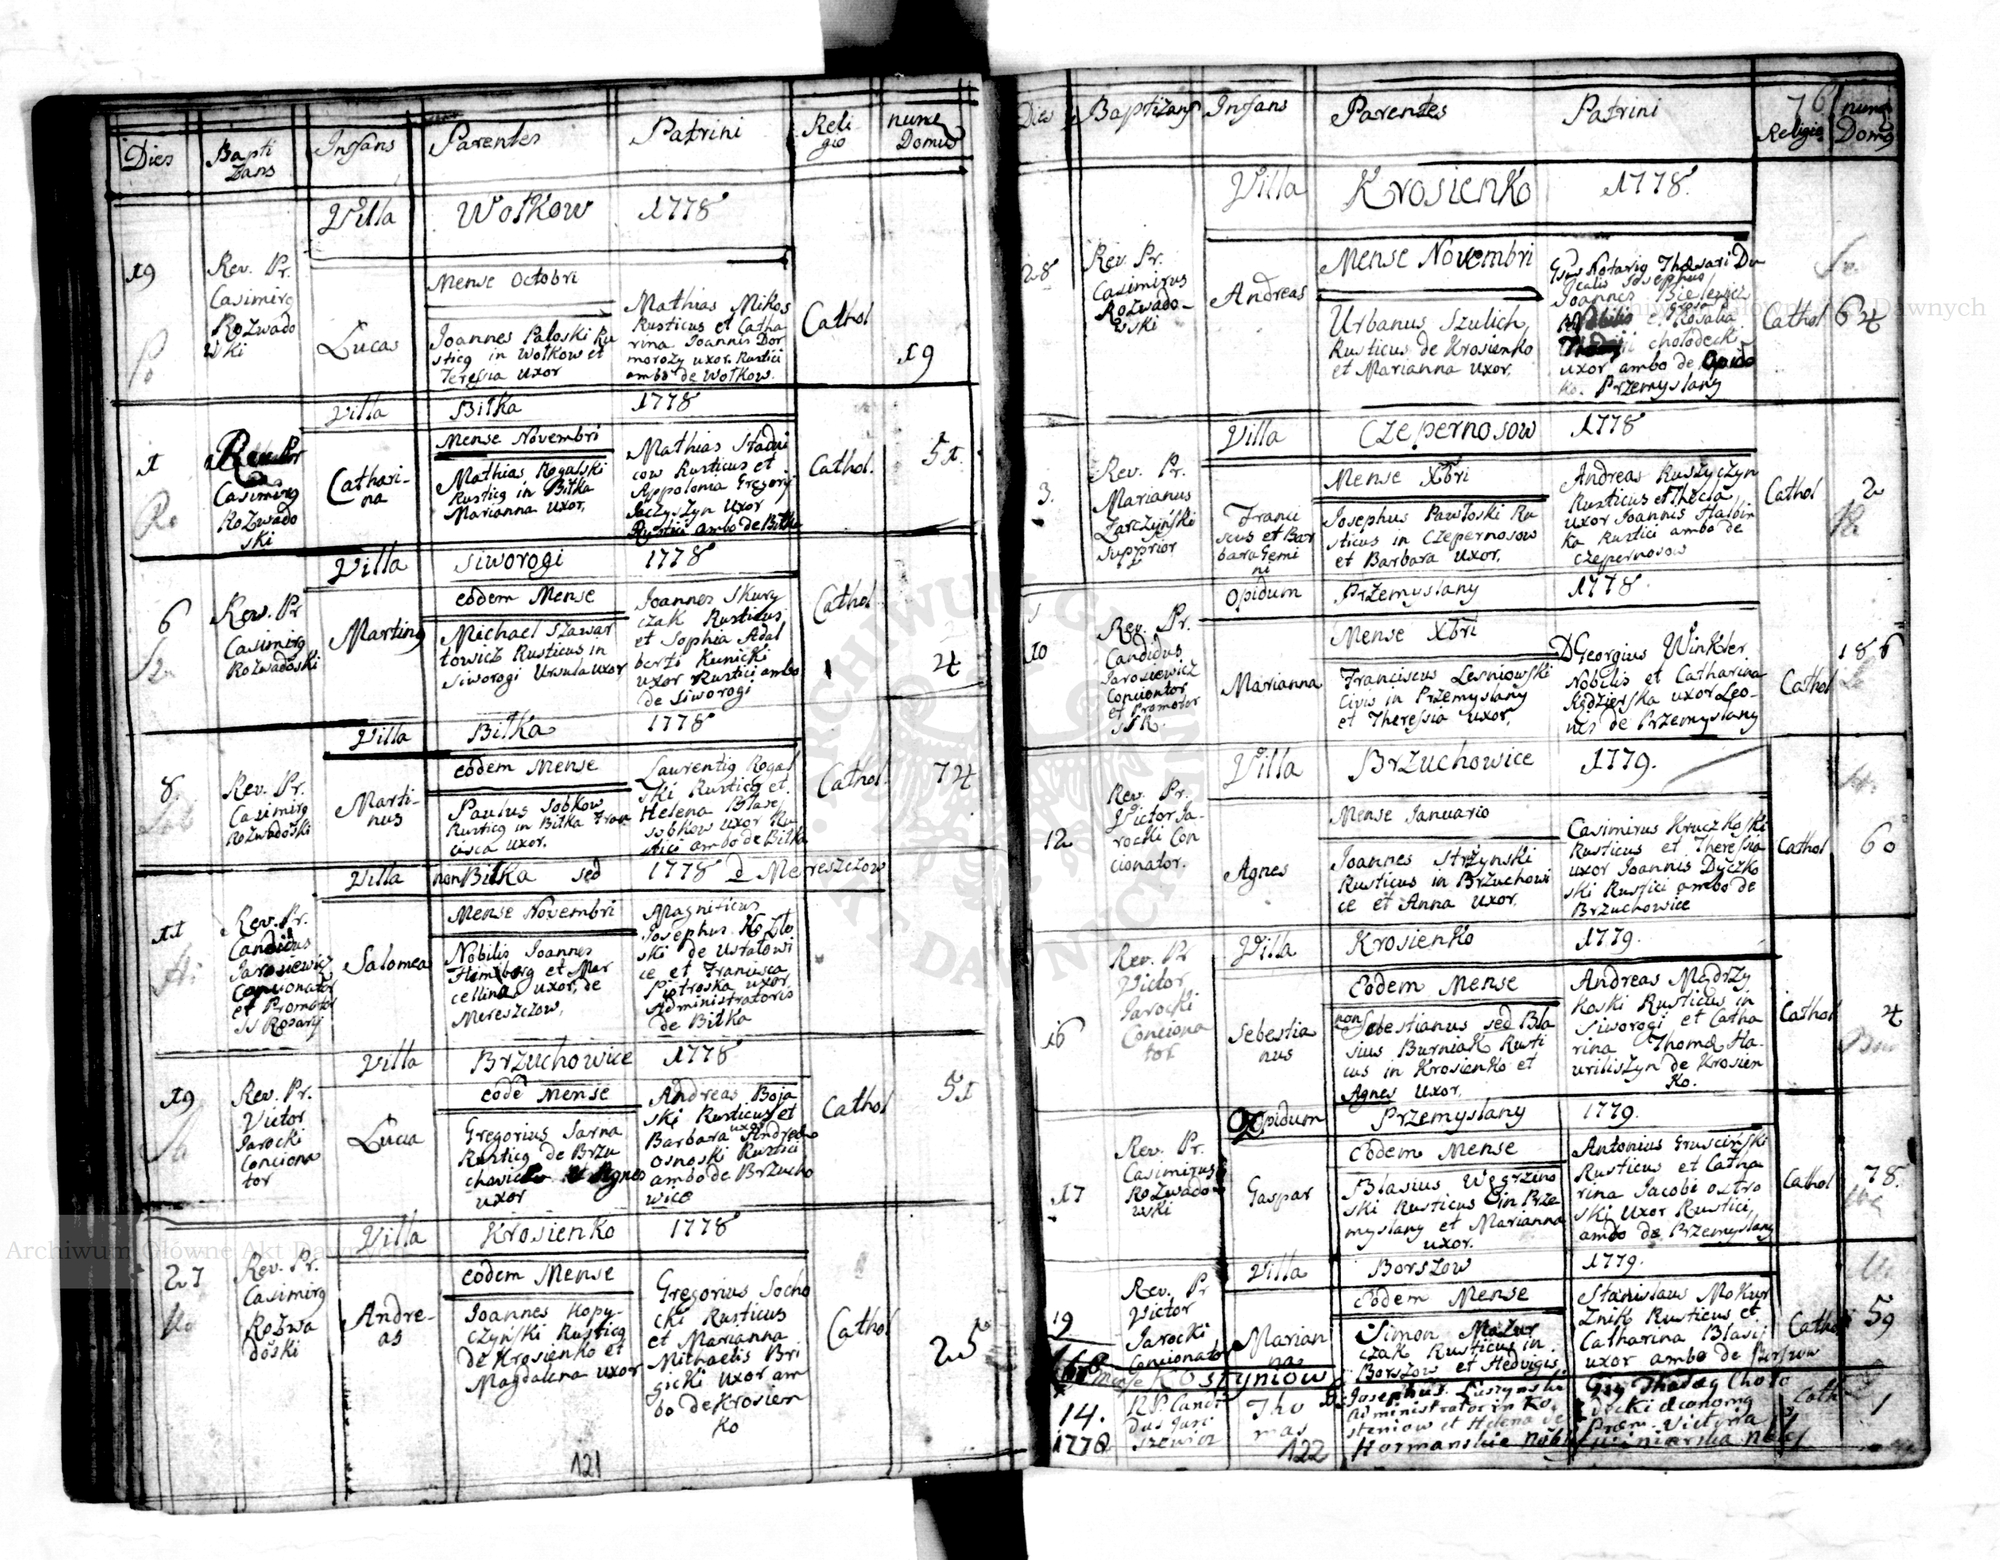 Dies
Bapti
zans
Infans
Parentes
Patrini
Reli
gio
nume
Domus
Villa Wołkow 1778
Mense Octobri
19
Rev. Pr.
Casimirg
Rozwado
wski
Lucas
Joannes Paloski Ru
sticg in Wołkow et
Teressia uxor
Mathias Mikos
Rusticus et Catha
rina Joannis Dor
moroży uxor Rustici
ambo de Wołkow.
Cathol
19
Villa Biłka 1778
Mense Novembri
1
Casimirg
Rozwado
ski
Cathari-
na
Mathias Rogalski
Rusticg in Biłka
Marianna uxor.
Mathias Stadni
cow Rusticus et
Appolonia Gregorj
Jaczyszyn uxor
Rustici ambo de Biłka
Cathol.
51.
Villa Siworogi 1778
eodem Mense
6
Rev. Pr
Casimirg
Rozwadoski
Marting
Michael Szawar
towicz Rusticus in
Siworogi Ursula uxor
Joannes Skury
czak Rusticus
et Sophia Adal
berti Kunicki
uxor Rustici ambo
de Siworogi
Cathol
4
Villa Biłka 1778
eodem Mense
8
Rev. Pr.
Casimirg
Rozwadoski
Marti-
nus
Paulus Sobkow
Rusticg in Biłka Fran
cisca uxor.
Laurentig Rogal
ski Rusticg et
Helena Blasej
Sobkow uxor Ru
stici ambo de Biłka
Cathol.
74
Villa non Biłka sed 1778 d Mereszczow
Mense Novembri
11
Rev. Pr.
Candidus
Jarosiewicz
Concionator
et Promotor
SS Rosarij
Salomea
Nobilis Joannes
Hemborg et Mar
cellina uxor, de
Mereszczow.
Magnificus
Josephus Kozlo
ski de Ustałowi
ce et Francisca
Piotroska uxor
Administratoris
de Biłka
Villa Brzuchowice 1778
eode Mense
19
Rev. Pr.
Victor
Jarocki
Conciona
tor
Lucia
Gregorius Sarna
Rusticg de Brzu
chowice et Agnes
uxor
Andreas Boja
ski Rusticus et
uxor
Barbara Andreae
Osnoski Rustici
ambo de Brzucho
wice
Cathol
51
Villa Krosienko 1778
eodem Mense
27
Rev. Pr.
Casimirg
Rozwa
doski
Andre-
as
Joannes Kopy-
czyński Rusticg
de Krosienko et
Magdalena uxor
Gregorius Socho
cki Rusticus
et Marianna
Michaelis Bri
gicki uxor am
bo de Krosien
ko
Cathol
25
121
Dies
Baptizans
Infans
Parentes
Patrini
76
Religio
nume
Domg
Villa Krosienko 1778.
Mense Novembri
28
Rev. Pr.
Casimirus
Rozwado-
wski
Andreas
Urbanus Szulich
Rusticus de Krosienko
et Marianna uxor.
Josephus
Joannes
et Rosalia
Chołodecki
uxor ambo de Opido
ko. Przemyslany
Cathol
64
Villa Czepernosow 1778
Mense Xbri
3.
Rev. Pr.
Marianus
Zarczyński
Supprior
Franci
scus et Bar
bara Gemi
ni
Josephus Pawłoski Ru
sticus in Czepernosow
et Barbara uxor.
Andreas Ruszyczyn
Rusticus et Thecla
uxor Joannis Hałbin
ka Rustici ambo de
Czepernosow
Cathol
2
Opidum Przemyslany 1778
Mense Xbri
10
Rev. Pr.
Candidus
Jarosiewicz
Concionator
et Promotor
SSR.
Marianna
Franciscus Lesniowski
Civis in Przemyslany
et Theressia uxor.
D Georgius Winkler
Nobilis et Catharina
Kędzierska uxor Leo-
nis de Przemyslany
Cathol
186
Villa Brzuchowice 1779.
Mense Januario
12
Rev. Pr.
Victor Ja-
rocki Con
cionator.
Agnes
Joannes Strzynski
Rusticus in Brzuchowi
ce et Anna uxor.
Casimirus Kruczkoski
Rusticus et Theressia
uxor Joannis Dyczko
ski Rustici ambo de
Brzuchowice
Cathol
60
Villa Krosienko 1779.
Eodem Mense
16
Rev. Pr
Victor
Jarocki
Conciona
tor.
Sebestia
nus
non Sebestianus sed Bla
sius Burniak Rusti
cus in Krosienko et
Agnes uxor.
Andreas Mądrzy
koski Rusticus in
Siworogi et Catha
rina Thomæ Ha-
wriliszyn de Krosien
ko.
Cathol
4
Opidum Przemyslany 1779.
Eodem Mense
17
Rev. Pr.
Casimirus
Rozwado
wski
Gaspar
Blasius Węgrzino
ski Rusticus in Prze
myslany et Marianna
uxor.
Antonius Grusciński
Rusticus et Catha
rina Jacobi Ostro
ski uxor Rustici
ambo de Przemyslany
Cathol
78.
Villa Borszow 1779.
Eodem Mense
19
Rev. Pr
Victor
Jarocki
Concionator
Marian
na
Simon Mazur
czak Rusticus in
Borszow et Hedvigis
Stanislaus Mokur
znik Rusticus et
Catharina Blasij
uxor ambo de Borszow
Cathol
59
Kostyniow
14.
1778
RP Candi
dus Jaro
szewicz
Tho
mas
Josephus Luszynski
Administrator in Ko
steniow et Helena de
Hormanskie Nobil
Choło
decki œconomg
Prem. Victoria
Cath
1
122
Archiwum Główne Akt Dawnych
Archiwum Główne Akt Dawnych
ARCHIWUM GŁÓWNE AKT DAWNYCH